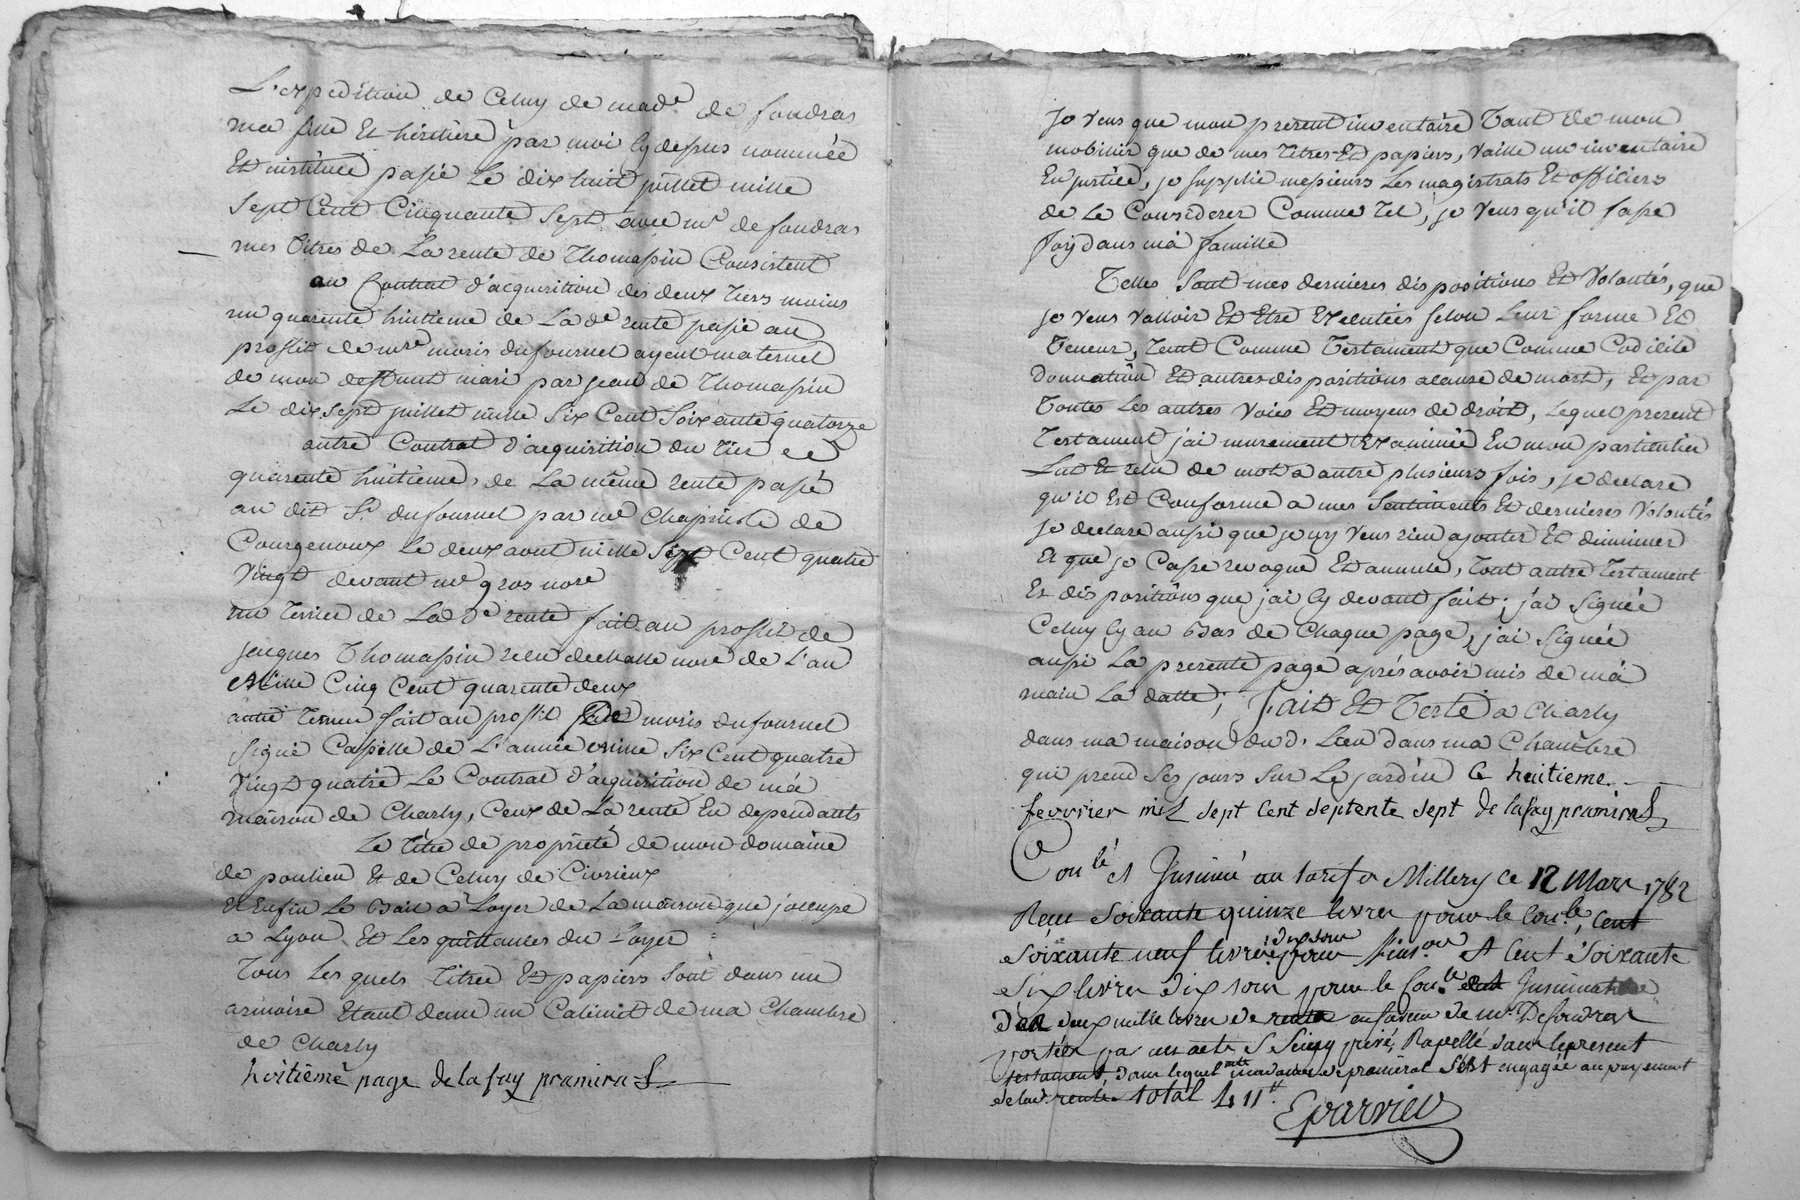 L'expedition de Celuy de mad.e de foudras
ma fille Et héritière par moi Cy dessus nommée
Et instituée passé Le dix huit juillet mille
Sept Cent Cinquante Sept avec mr de foudras
mes titres de La rente de Thomassin Consistent
au Contrat d'acquisition des deux tiers moins
un quarente huitieme de La de rente passé au
proffit de mre moris dufournel ayeul maternel
de mon deffunt mari par jean de Thomassin
Le dix Sept juillet mille Six Cent Soixante quatorze
autre Contrat d'acquisition du tier et
quarente huitieme de La même rente passé
au dit Sr dufournel par mr de
Courgenoux Le deux aout mille Sept Cent quatre
Vingt devant me gros nore
un terrier de La de rente fait au proffit de
jacques Thomassin nore de L'an
Mille Cinq Cent quarente deux
autre terrier fait au proffit De moris dufournel
Signé Capelle de L'année mille Six Cent quatre
Vingt quatre Le Contrat d'acquisition de ma
maison de Charly, Ceux de La rente En dependants
Le titre de proprieté de mon domaine
de poulieu Et de Celuy de Civrieux
Et Enfin Le Bail a Loyer de La maison que j'occupe
a Lyon Et Les quittances du Loyer
tous Les quels titres Et papiers Sont dans un
armoire Etant dans un Cabinet de ma Chambre
de Charly
huitiême page de la fay pramiral
je veus que mon present inventaire tant de mon
mobilier que de mes titres Et papiers, vaille un inventaire
En justice, je supplie messieurs Les magistrats Et officiers
de Le Considerer Comme tel, je veus qu'il fasse
foy dans ma famille
Telles Sont mes dernieres dispositions Et Volontés, que
je veus valloir Et Etre Executées selon Leur forme Et
teneur, tant Comme testament que Comme Codicile
donnation Et autres dispositions a cause de mort, Et par
toutes Les autres Voies Et moyens de droit, Lequel present
testament j'ai murement Examinée En mon particulier
Lut Et relu de mot a autre plusieurs fois, je declare
qu'il Est Conforme a mes Sentiments Et dernieres Volontés
je declare aussi que je ny veus rien ajouter Et diminuer
Et que je Casse revoque Et annulle, tout autre testament
Et dispositions que j'ai Cy devant fait; j'ai Signée
Celuy Cy au Bas de Chaque page, j'ai Signée
aussi La presente page après avoir mis de ma
main La datte; Fait Et Testé a Charly
dans ma maison du d. Lieu dans ma Chambre
qui prend Ses jours Sur Le jardin Ce huitieme
fevrier mil sept Cent septente sept de la fay pramiral
Con.lé et Insinué au tarif a Millery ce 12 Mars 1782
Reçu soixante quinze livres pour le Con.le, Cent
soixante neuf livres dix sous pour l'ins.on Et Cent soixante
six livres dix sous pour le Con.le Insinuation
d'un deux mille livres de rente en faveur de mr Defoudras
portée par un acte S Seing privé, Rapellé dans le present
testament, dans lequel made de pramiral s'est engagée au payement
de lad rente total 411 #
Eparvier